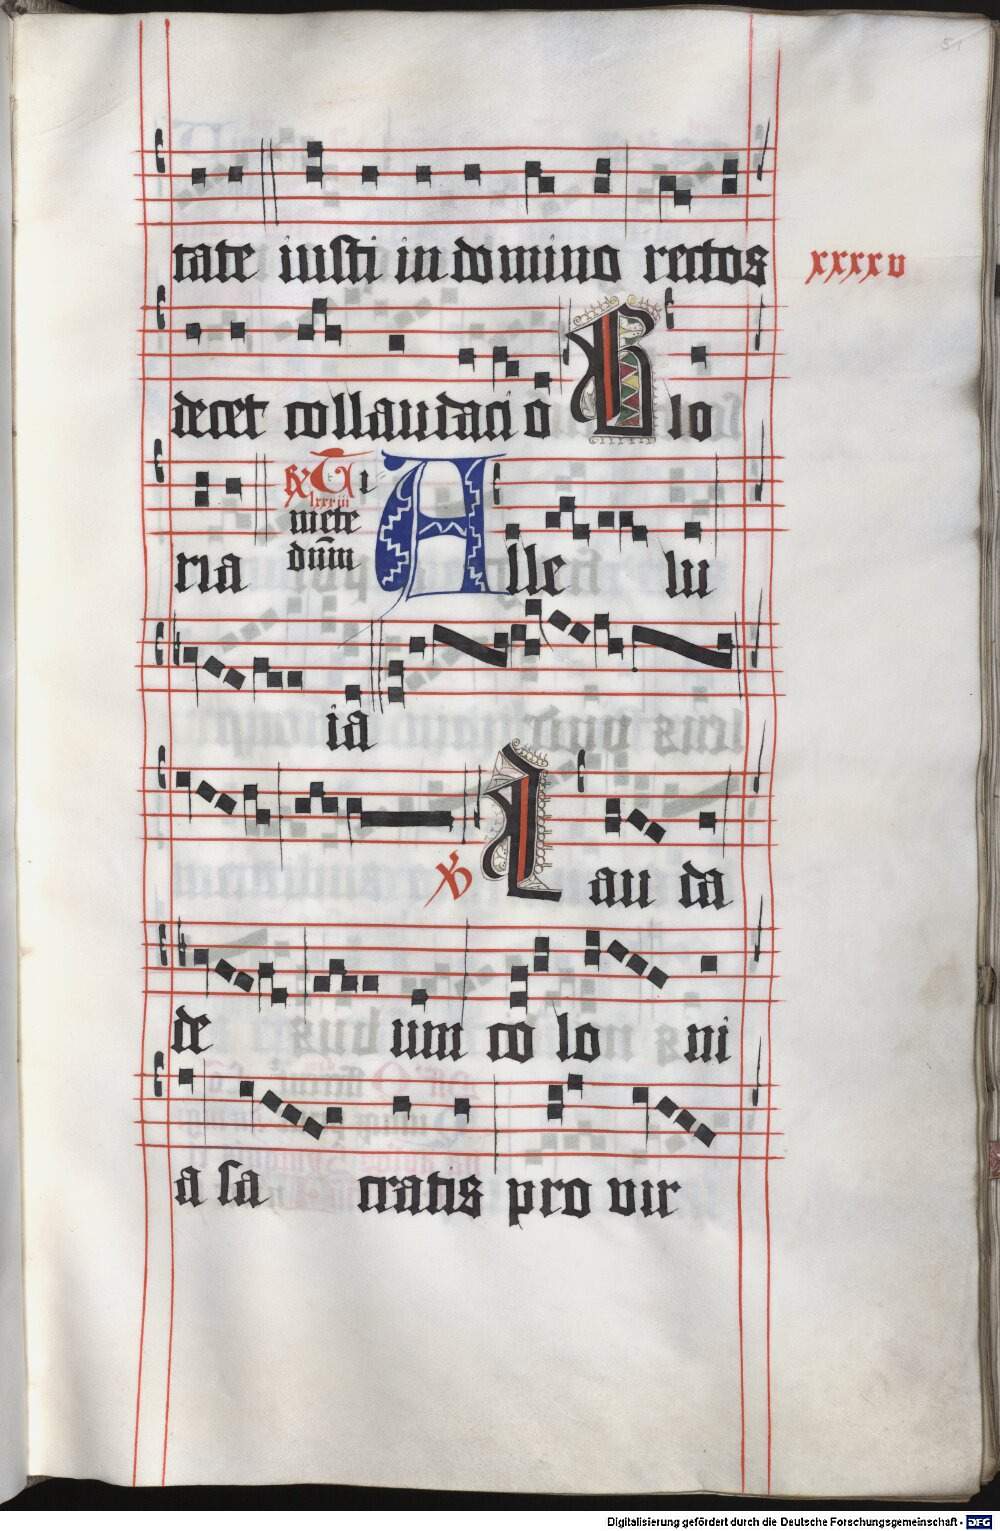 51
tate iusti in domino rectos
xxxxv
decet collaudacio Glo
ria
R Ti
lxxxiii
mete
dūm
Alle lu
ia
V Lau da
de um co lo ni
a sa cratis pro vir
Digitalisierung gefördert durch die Deutsche Forschungsgemeinschaft - DFG